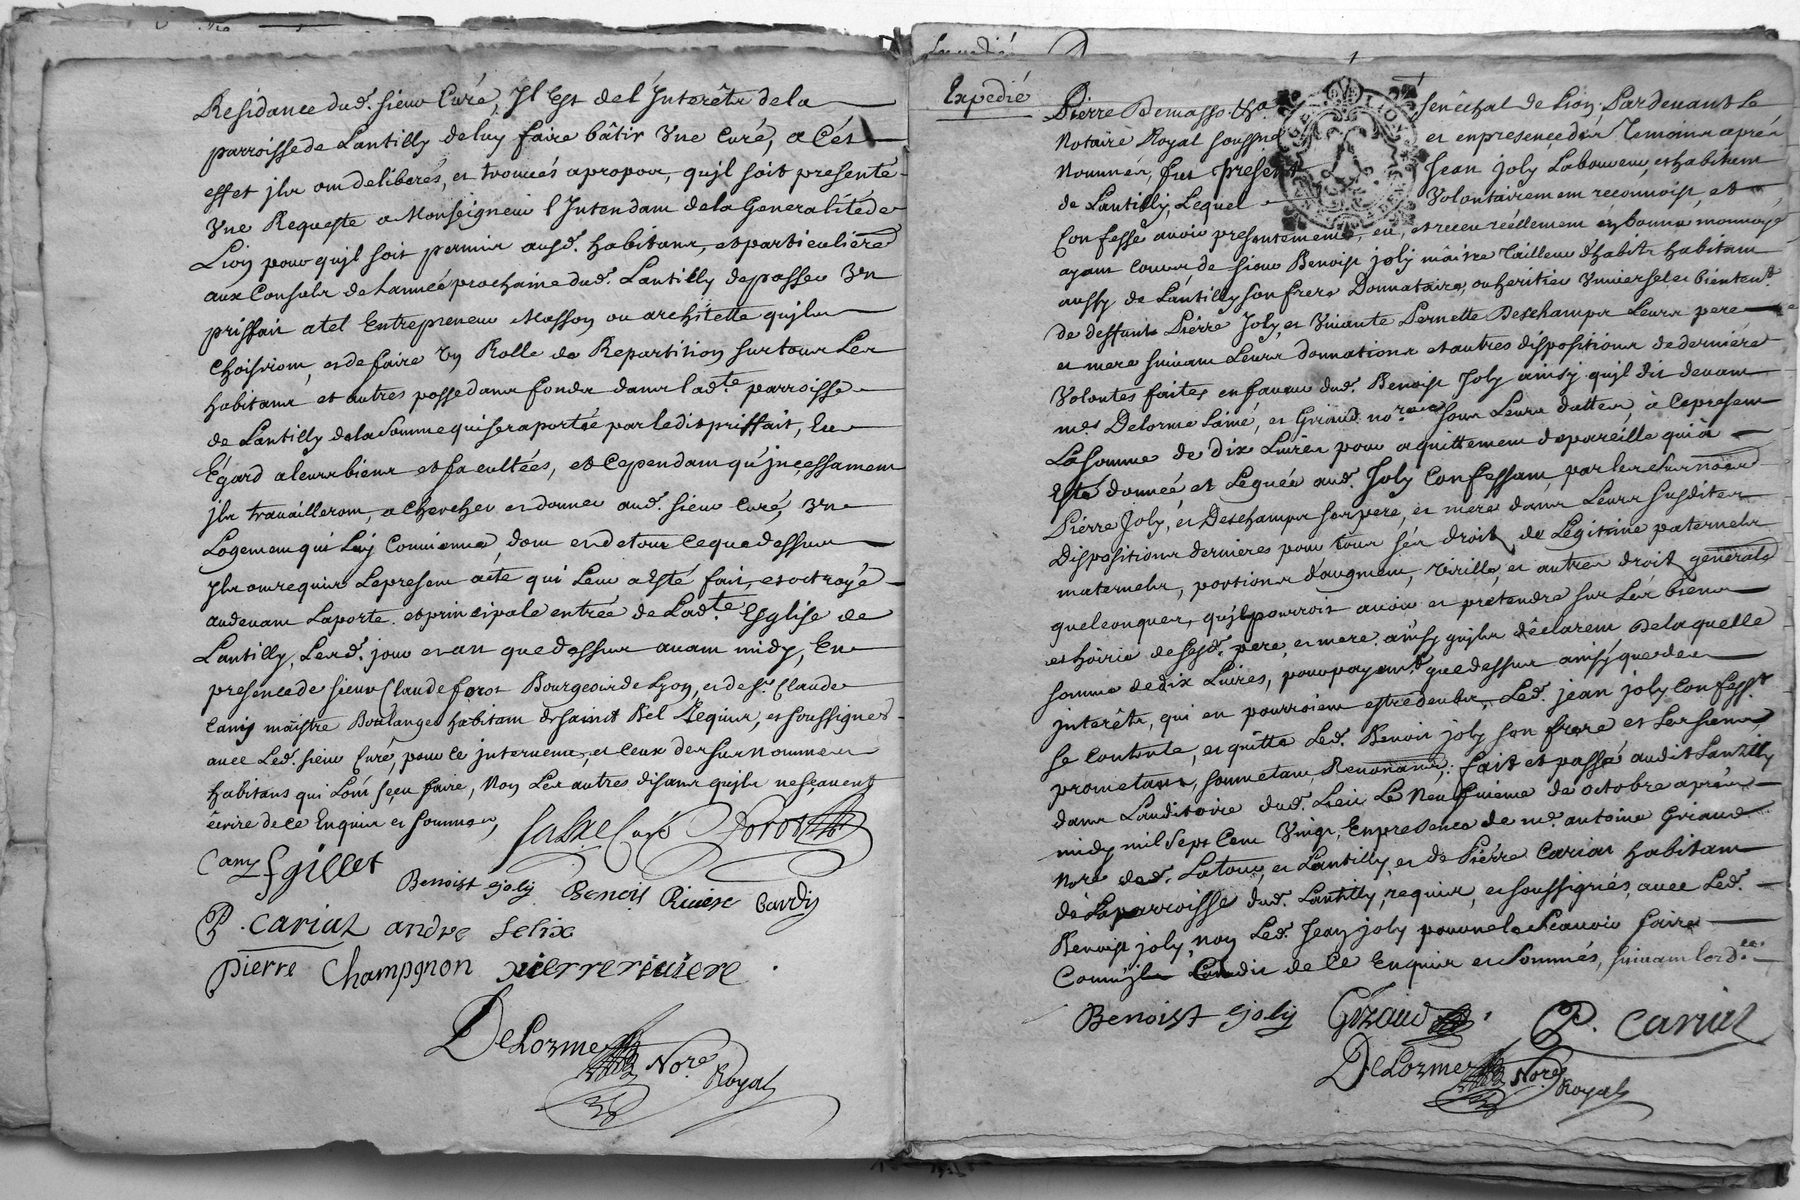 Residance dud. sieur Curé, Il Est de l'Interêtz de la
parroisse de Lantilly de luy faire bâtir Une Cure, a Cét
effet ilz ont deliberés, et trouvés a propos, qu'jl soit presenté
Une Requeste a Monseigneur l'Intendant de la Generalité de
Lion pour qu'jl soit permis ausd. habitans, et particuliere
aux Consulz de Lannéé prochaine dud. Lantilly de passer Vn
prisfait a tel Entrepreneur Masson ou architette qu'jlz
choisiront, et de faire Vn Rolle de Repartition sur tous Les
habitans et autres possedans fondz dans lad.te parroisse
de Lantilly de la Somme qui sera portéé par ledit prisffait, Eu
Égard a leurs biens et facultées, et Cependant qu'incessament
jlz travailleront, a Chercher et donner aud. sieur Curé, Vn
Logement qui Luy Convienne, dont et de tout ce que dessus
Ilz ont requis Le present acte qui Leur a Esté fait, et octroyé
audevant La porte et principale entréé de Lad.te Esglise de
Lantilly, Lesd. jour et an que dessus avant midy, En
presence de sieur Claude forot Bourgeois de Lyon, et de s.r Claude
Cany maistre Boulanger habitant de Saint Bel Requis, et soussignes
avec Led. sieur Curé, pour ce intervenu, et Ceux des surnommes
habitans qui L'ont sçeu faire, Non Les autres disans qu'jlz ne sçavent
écrire de ce Enquis et sommes,
Curé forot
Cany Gillet
Benoist Joly Benois Riviere Bardy
P. Cariat andre felix
pierre Champgnon pierre riviere
DeLorme Nore Royal
Expedié
Pierre Demasso Senêchal de Lion Pardevant Le
Notaire Royal Soussigné et en presence des Temoins aprés
Nommés, fut present Jean Joly Laboureur et habitant
de Lantilly, Lequel Volontairement reconnoist, et
Confesse avoir presentement, eu, et receu réellement en bonne monnoye
ayant Cours, de sieur Benoist joly mâitre Tailleur d'habitz habitant
aussy de Lantilly son frere Donnataire, ou heritier Vniversel et bientent.t
de deffunt Pierre Joly, et Vivante Pernette Deschamps Leurs pere
et mere suivant Leurs donnations et autres dispositions de derniére
Volontes faites en faveur dud. Benoist Joly ainsy qu'jl dit devant
mes Delorme L'ainé, et Giraud no.res sous Leurs dattes, à Ce present
La Somme de dix Livres pour aquittement de pareille qui a
Esté donnéé et Leguéé aud. Joly Confessant par les surnoms
Pierre Joly, et Deschamps ses pere, et mere dans Leurs susdites
Dispositions dernieres pour tous sés droitz de Legitime paternelz
maternelz, portions d'augment, virille, et autres droitz generals
quelconques, qu'jl pourroit avoir et prétendre sur Les biens
et hoirie de sesd. pere, et mere ainsy qu'jlz déclarent De laquelle
somme de dix Livres, pour payem.t que dessus ainsy que des
interêtz, qui en pourroient estre deubz, Led. jean joly Confess.t
se contente, et quitte Led. Benoist joly son frere et Les siens
prometans, soumetans, Renonans; fait et passé audit Lantilly
dans L'auditoire dud. Lieu Le Neufvieme de octobre aprés
midy mil sept Cent Vingt, En presence de me. antoine Giraud
Nore de La tour, et Lantilly, et de Pierre Cariat habitant
de La parroisse dud. Lantilly, requis, et soussignés, avec Led.
Benoist joly, non Led. Jean joly pour ne le scavoir faire
Comme jl a Dit de ce Enquis et Sommés, suivant Lord.ce
Benoist Joly Giraud P. Cariat
DeLorme Nore Royal